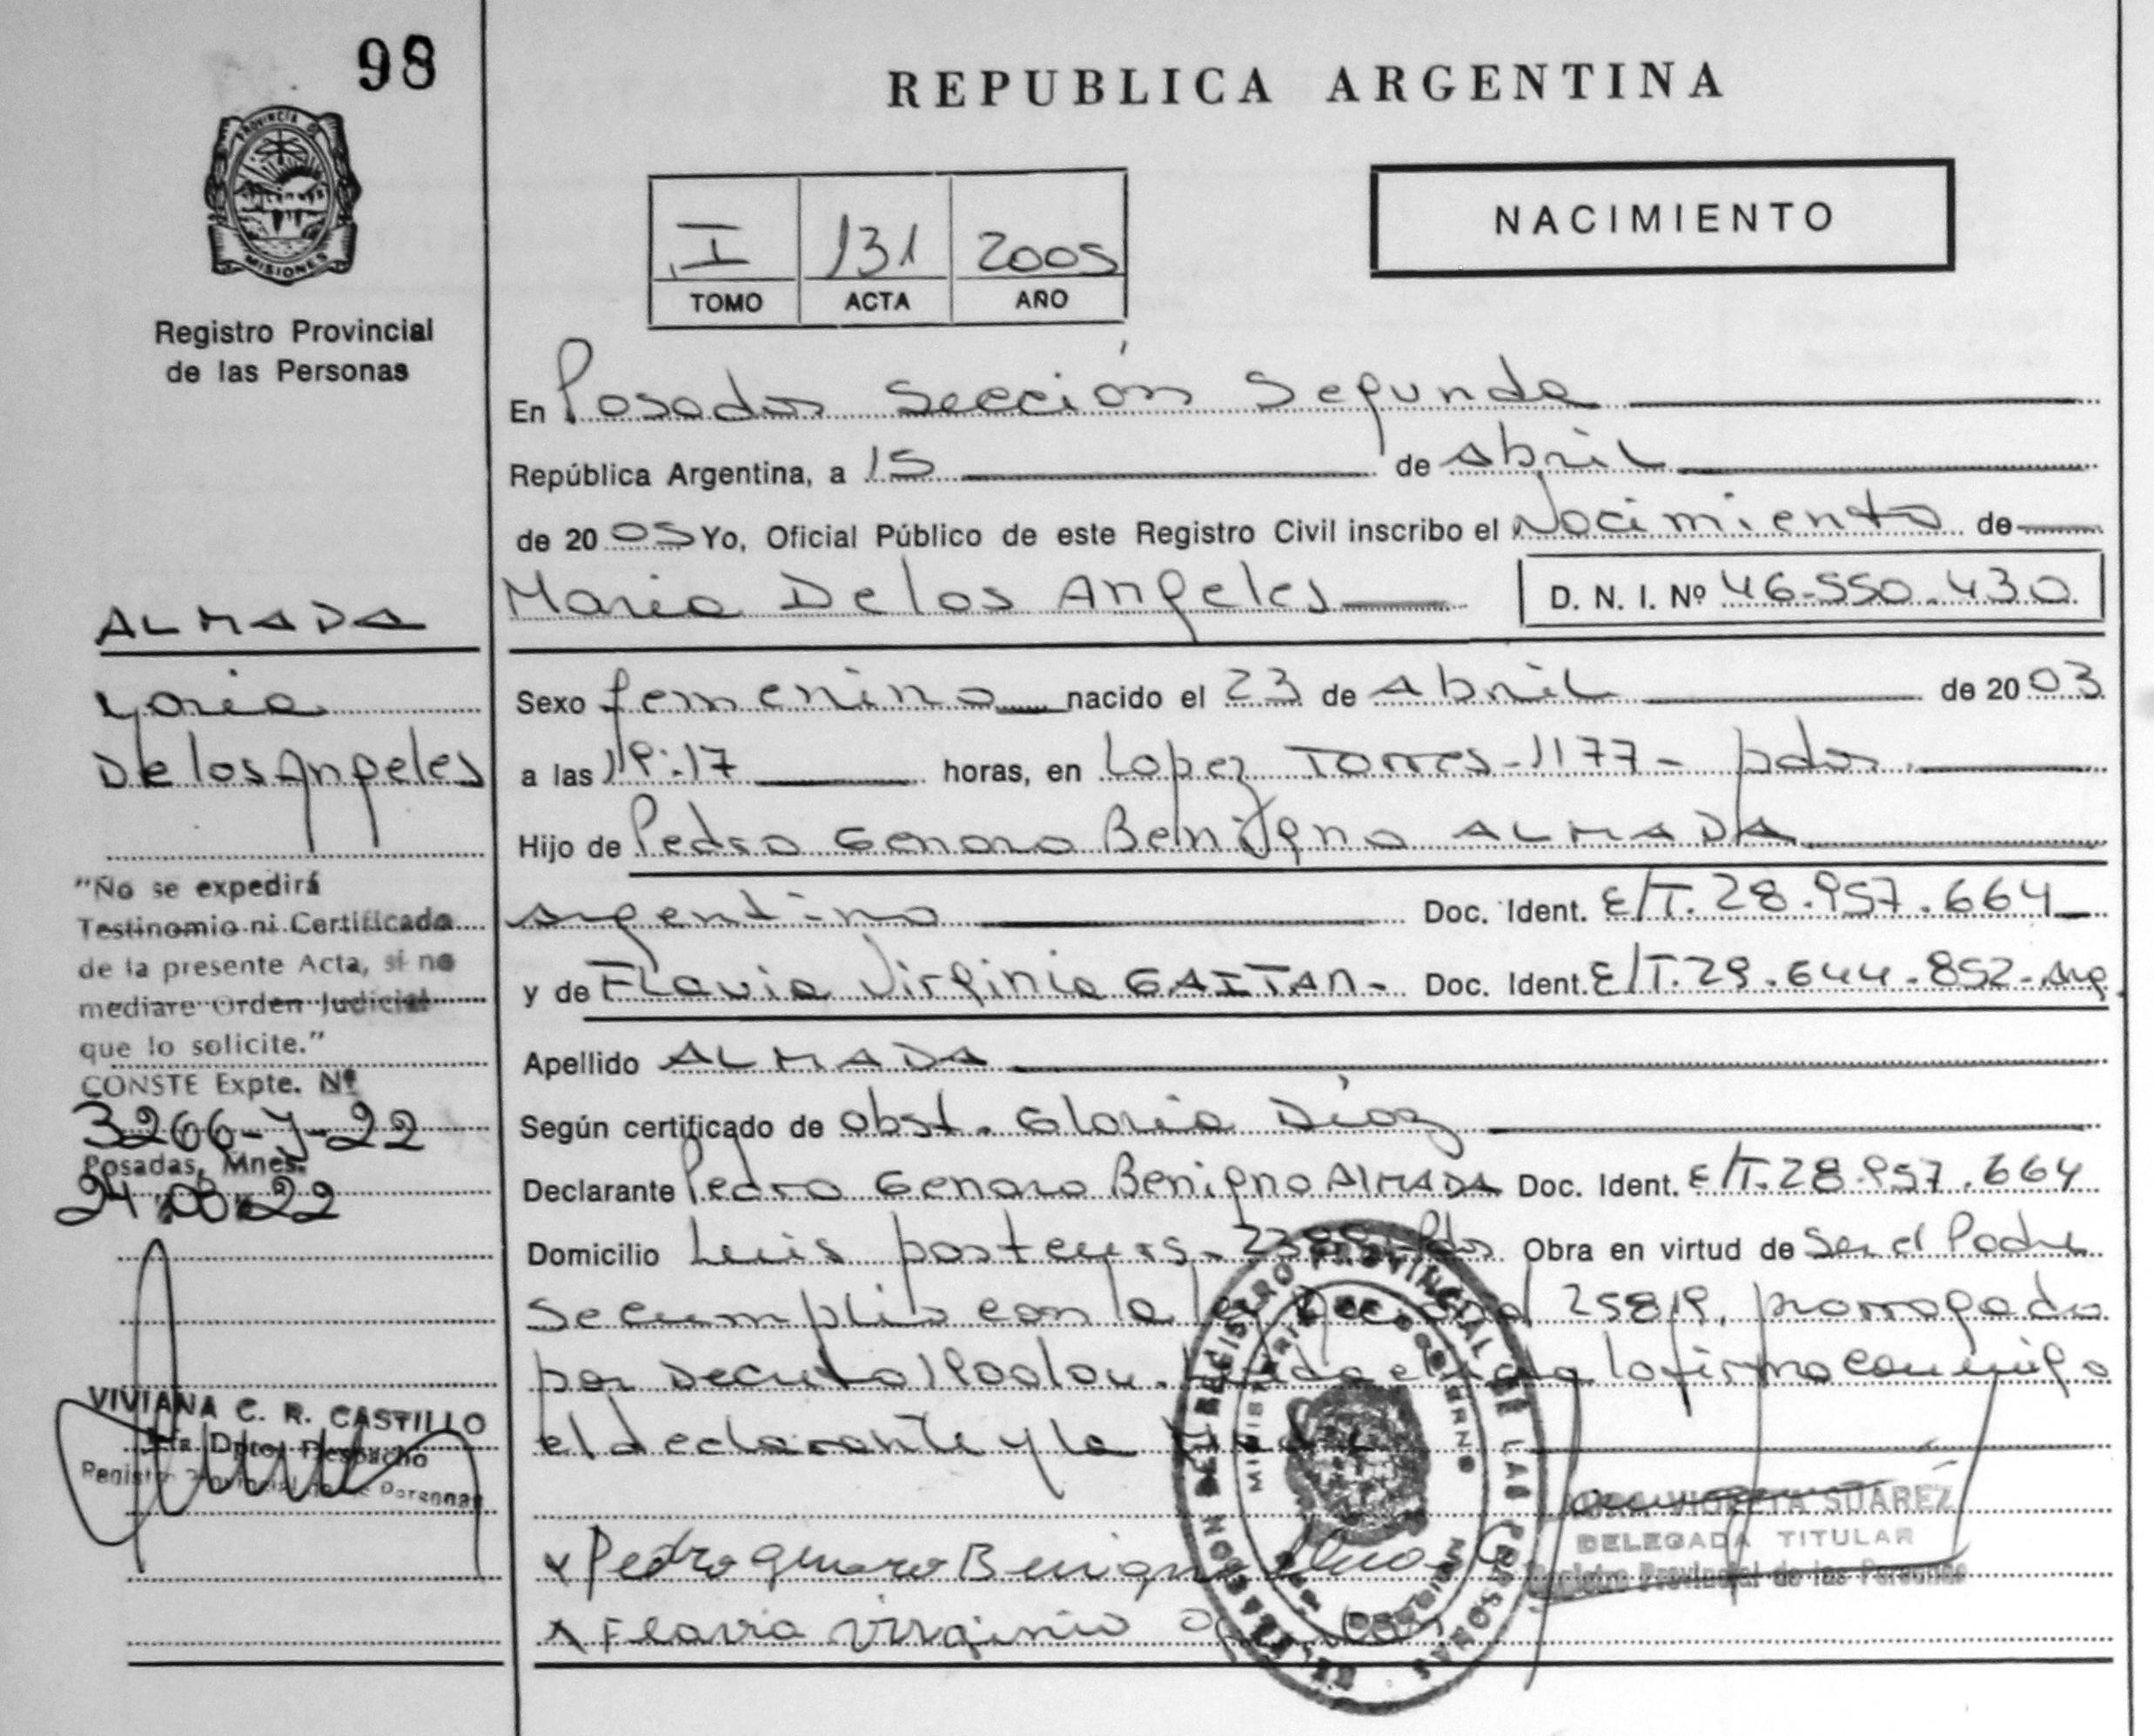 98
REPUBLICA ARGENTINA
PROVINCIA DE
MISIONES
Registro Provincial
de las Personas
I 131 2005
TOMO ACTA AÑO
NACIMIENTO
En Posadas Sección Segunda
República Argentina, a 15 de Abril
de 2005 Yo, Oficial Público de este Registro Civil inscribo el Nacimiento de
Maria De los Angeles D. N. I. Nº 46.550.430
Sexo femenino nacido el 23 de Abril de 2003
a las 19:17 horas, en Lopez Torres-1177- pdas.
Hijo de Pedro Genaro Benigno ALMADA
argentino Doc. Ident. E/T. 28.957.664
y de Flavia Virginia GAITAN- Doc. Ident. E/T.29.644.852-Arg
Apellido ALMADA
Según certificado de obst. Gloria Díaz
Declarante Pedro Genaro Benigno ALMADA Doc. Ident. E/T.28.957.664
Domicilio Luis pasteurs- Pdas Obra en virtud de Ser el Padre
Se cumplio con la 25819, prorrogada
por Decreto lo firma conmigo
el declarante y la
Pedro genaro Benigno
Flavia virginia
ALMADA
Maria
De los Angeles
"No se expedirá
Testinomio ni Certificado
de la presente Acta, si no
mediare Orden Judicial
que lo solicite."
CONSTE Expte. Nº
3266-J-22
Posadas, Mnes.
24.08.22
VIVIANA C. R. CASTILLO
Dpto. Despacho
Registro Provincial de las Personas
REGISTRO PROVINCIAL DE LAS PERSONAS
MINISTERIO DE GOBIERNO
MISIONES
VIOLETA SUAREZ
DELEGADA TITULAR
Registro Provincial de las Personas